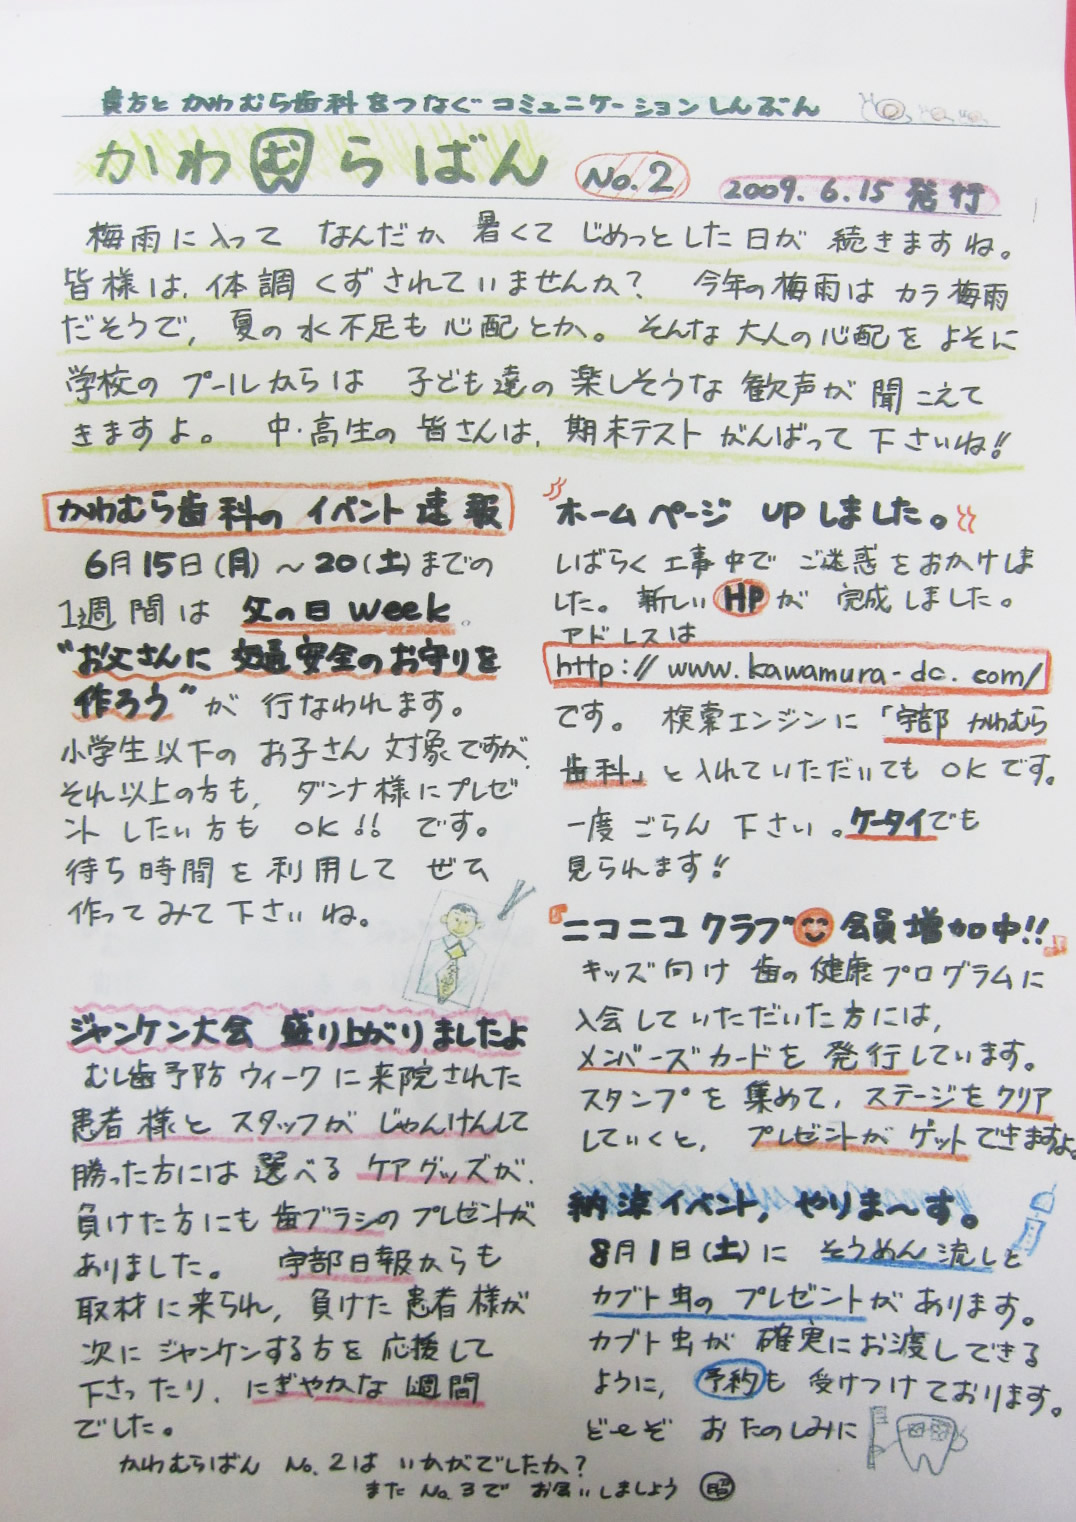 貴方と かわむら歯科をつなぐ コミュニケーションしんぶん
かわむらばん No.2 2009.6.15 発行
梅雨に入って なんだか 暑くて じめっとした日が 続きますね。
皆様は、体調 くずされていませんか? 今年の梅雨は カラ梅雨
だそうで、夏の水不足も心配とか。そんな大人の心配を よそに
学校の プールからは 子ども達の 楽しそうな 歓声が 聞こえて
きますよ。 中・高生の 皆さんは、期末テスト がんばって 下さいね!!
かわむら歯科の イベント速報
6月15日(月)~20(土)までの
1週間は 父の日 Week。
"お父さんに 交通安全のお守りを
作ろう"が 行なわれます。
小学生以下の お子さん 対象ですが、
それ以上の方も、ダンナ様にプレゼ
ント したい方も OK!! です。
待ち時間を利用して ぜひ
作ってみて下さいね。
ジャンケン大会 盛り上がりましたよ
むし歯予防 ウィークに来院された
患者様と スタッフが じゃんけんして
勝った方には選べる ケアグッズが、
負けた方にも 歯ブラシの プレゼントが
ありました。 宇部日報からも
取材に来られ、負けた患者様が
次に ジャンケンする方を 応援して
下さったり、にぎやかな 1週間
でした。
ホームページ UPしました。
しばらく工事中で ご迷惑をおかけしま
した。新しいHPが 完成しました。
アドレスは
http://www.kawamura-dc.com/
です。 検索エンジンに「宇部 かわむら
歯科」と入れていただいても OKです。
一度 ごらん下さい。ケータイでも
見られます!!
『ニコニコクラブ 会員増加中!!』
キッズ向け 歯の健康プログラムに
入会していただいた方には、
メンバーズカードを 発行しています。
スタンプを 集めて、ステージをクリア
していくと、プレゼントが ゲットできますよ。
納涼イベント、やりま～す。
8月1日(土)に そうめん流しと
カブト虫の プレゼントがあります。
カブト虫が 確実にお渡しできる
ように、予約も 受けつけております。
ど～ぞ おたのしみに
かわむらばん No.2は いかがでしたか?
また No.3で お会いしましょう 昭